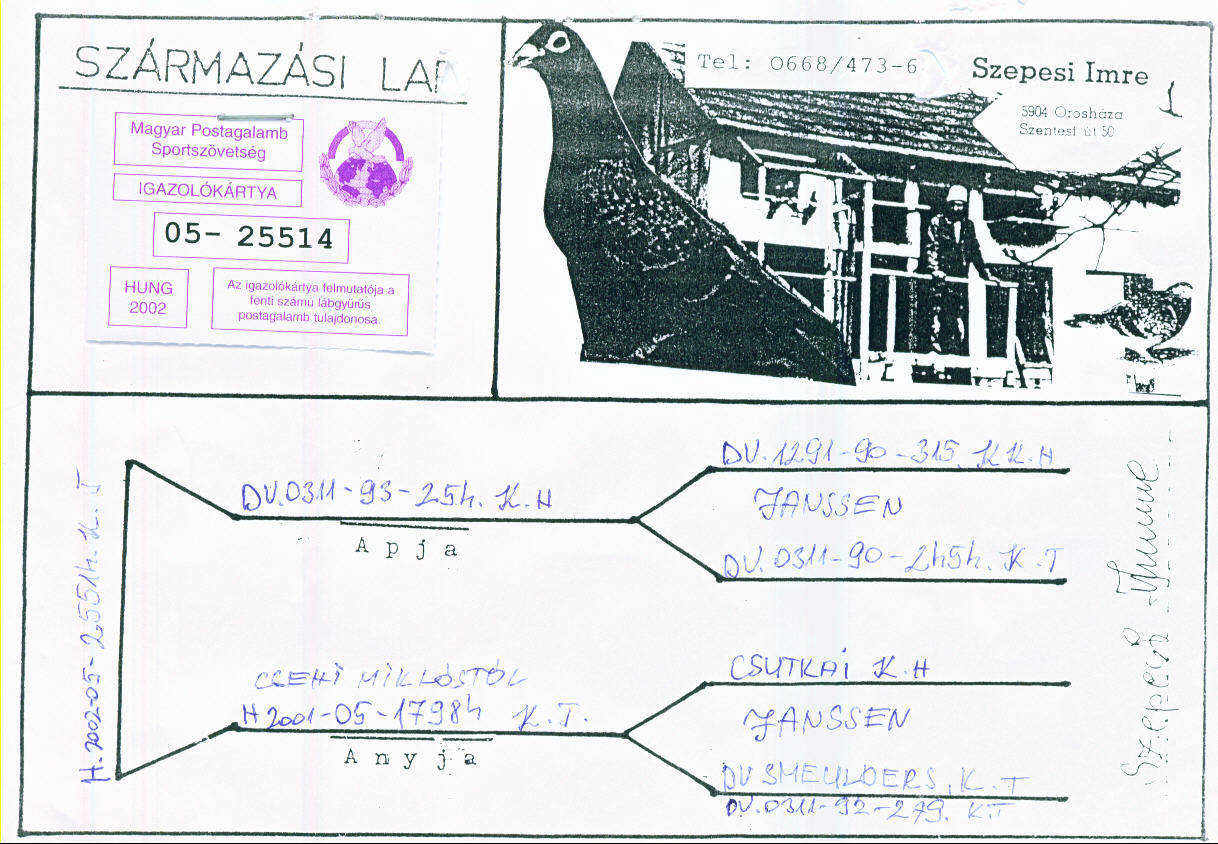 SZÁRMAZÁSI LAP
Magyar Postagalamb
Sportszövetség
IGAZOLÓKÁRTYA
05- 25514
HUNG
2002
Az igazolókártya felmutatója a
fenti számú lábgyűrűs
postagalamb tulajdonosa.
Tel: 0668/473-6
Szepesi Imre
5904 Orosháza
Szentesi út 50
H.2002-05-25514. K.T
DV.0311-93-254. K.H
Apja
DV.1291-90-315. KK.H
JANSSEN
DV.0311-90-2454. K.T
CSEHI MIKLÓSTÓL
H2001-05-17984 K.T.
Anyja
CSUTKAI K.H
JANSSEN
DV SMEULDERS. K.T
DV.0311-92-279. K.T
Szepesi Imre